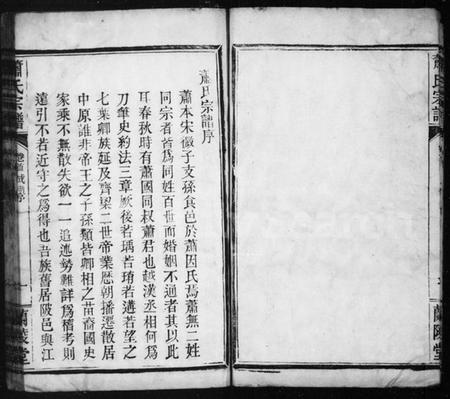 蕭氏宗譜
蘭陵堂
蕭氏宗譜序
蕭本宋微子支孫食邑於蕭因氏焉蕭無二姓
同宗者皆為同姓百世而婚姻不通者其以此
耳春秋時有蕭國同叔蕭君也越漢丞相何為
刀筆史約法三章厥後若瑀若琦若遘若望之
七葉卿族延及齊梁二世帝業歷朝播遷散居
中原誰非帝王之子孫類皆卿相之苗裔國史
家乘不無散失欲一一追遡勢難詳為稽考則
遠引不若近守之為得也吾族舊居陂邑與江
蕭氏宗譜
序
一
蘭陵堂